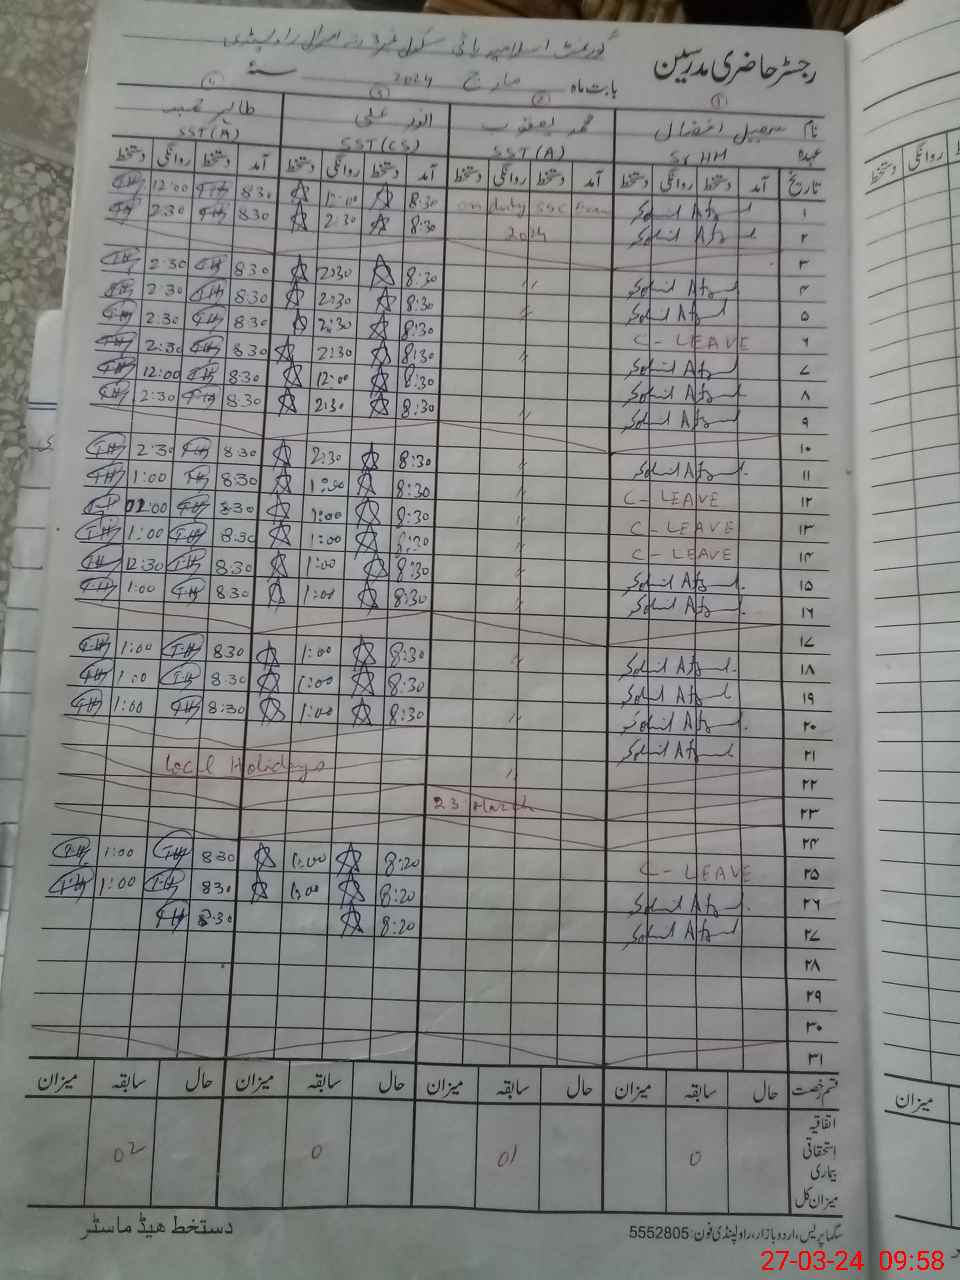 رجسٹر حاضری مدرسین
گورنمنٹ اسلامیہ ہائی سکول نمبر 3 راولپنڈی
بابت ماہ مارچ 2024 سنہ
1 2 3 4
نام سہیل افضال محمد یعقوب انور علی طاہر
عہدہ Sr HM SST (A) SST (CS) SST (A)
تاریخ آمد دستخط روانگی دستخط آمد دستخط روانگی دستخط آمد دستخط روانگی دستخط آمد دستخط روانگی دستخط
۱ Sohail Afzal on duty SSC Exam 8:30 12:00 8:30 TH 12:00 TH
۲ Sohail Afzal 2024 8:30 2:30 8:30 TH 2:30 TH
۳
۴ Sohail Afzal " 8:30 2:30 8:30 TH 2:30 TH
۵ Sohail Afzal " 8:30 2:30 8:30 TH 2:30 TH
۶ C-LEAVE " 8:30 2:30 8:30 TH 2:30 TH
۷ Sohail Afzal " 8:30 2:30 8:30 TH 2:30 TH
۸ Sohail Afzal 8:30 12:00 8:30 TH 12:00 TH
۹ Sohail Afzal " 8:30 2:30 8:30 TH 2:30 TH
۱۰
۱۱ Sohail Afzal " 8:30 2:30 8:30 TH 2:30 TH
۱۲ C-LEAVE " 8:30 1:00 8:30 TH 1:00 TH
۱۳ C-LEAVE " 8:30 1:00 8:30 TH 01:00 TH
۱۴ C-LEAVE " 8:30 1:00 8:30 TH 1:00 TH
۱۵ Sohail Afzal " 8:30 1:00 8:30 TH 12:30 TH
۱۶ Sohail Afzal " 8:30 1:00 8:30 TH 1:00 TH
۱۷
۱۸ Sohail Afzal " 8:30 1:00 8:30 TH 1:00 TH
۱۹ Sohail Afzal 8:30 1:00 8:30 TH 1:00 TH
۲۰ Sohail Afzal " 8:30 1:00 8:30 TH 1:00 TH
۲۱ Sohail Afzal
۲۲ " Local Holidays
۲۳ 23 March
۲۴
۲۵ C-LEAVE 8:20 1:00 8:30 TH 1:00 TH
۲۶ Sohail Afzal 8:20 1:00 8:30 TH 1:00 TH
۲۷ Sohail Afzal 8:20 8:30 TH
۲۸
۲۹
۳۰
۳۱
قسم رخصت حال سابقہ میزان حال سابقہ میزان حال سابقہ میزان حال سابقہ میزان
اتفاقیہ
استحقاقی 0 01 0 02
بیماری
میزان کل
دستخط ھیڈ ماسٹر
سگما پریس، اردو بازار، راولپنڈی فون: 5552805
روانگی دستخط
میزان
27-03-24 09:58